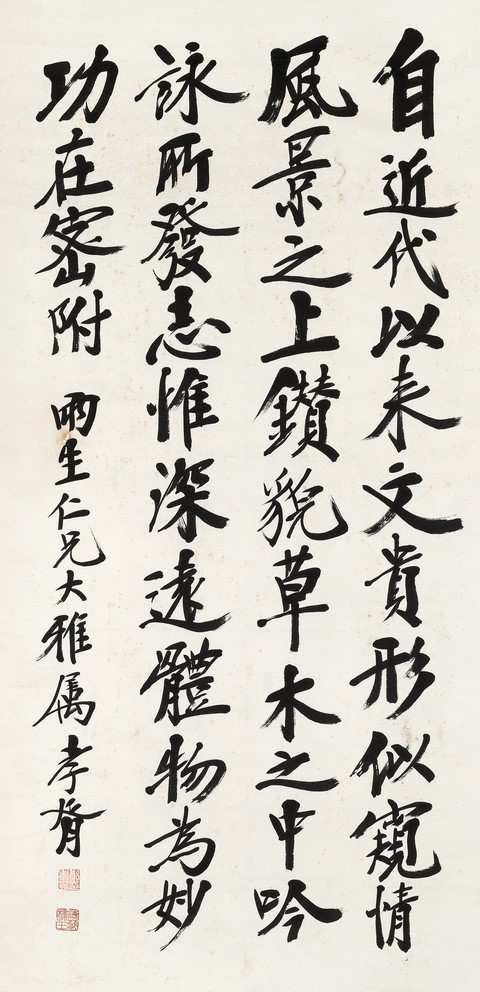 自近代以来文貴形似窺情
風景之上鑽貌草木之中吟
詠所發志惟深遠體物為妙
功在密附 雨生仁兄大雅属 孝胥